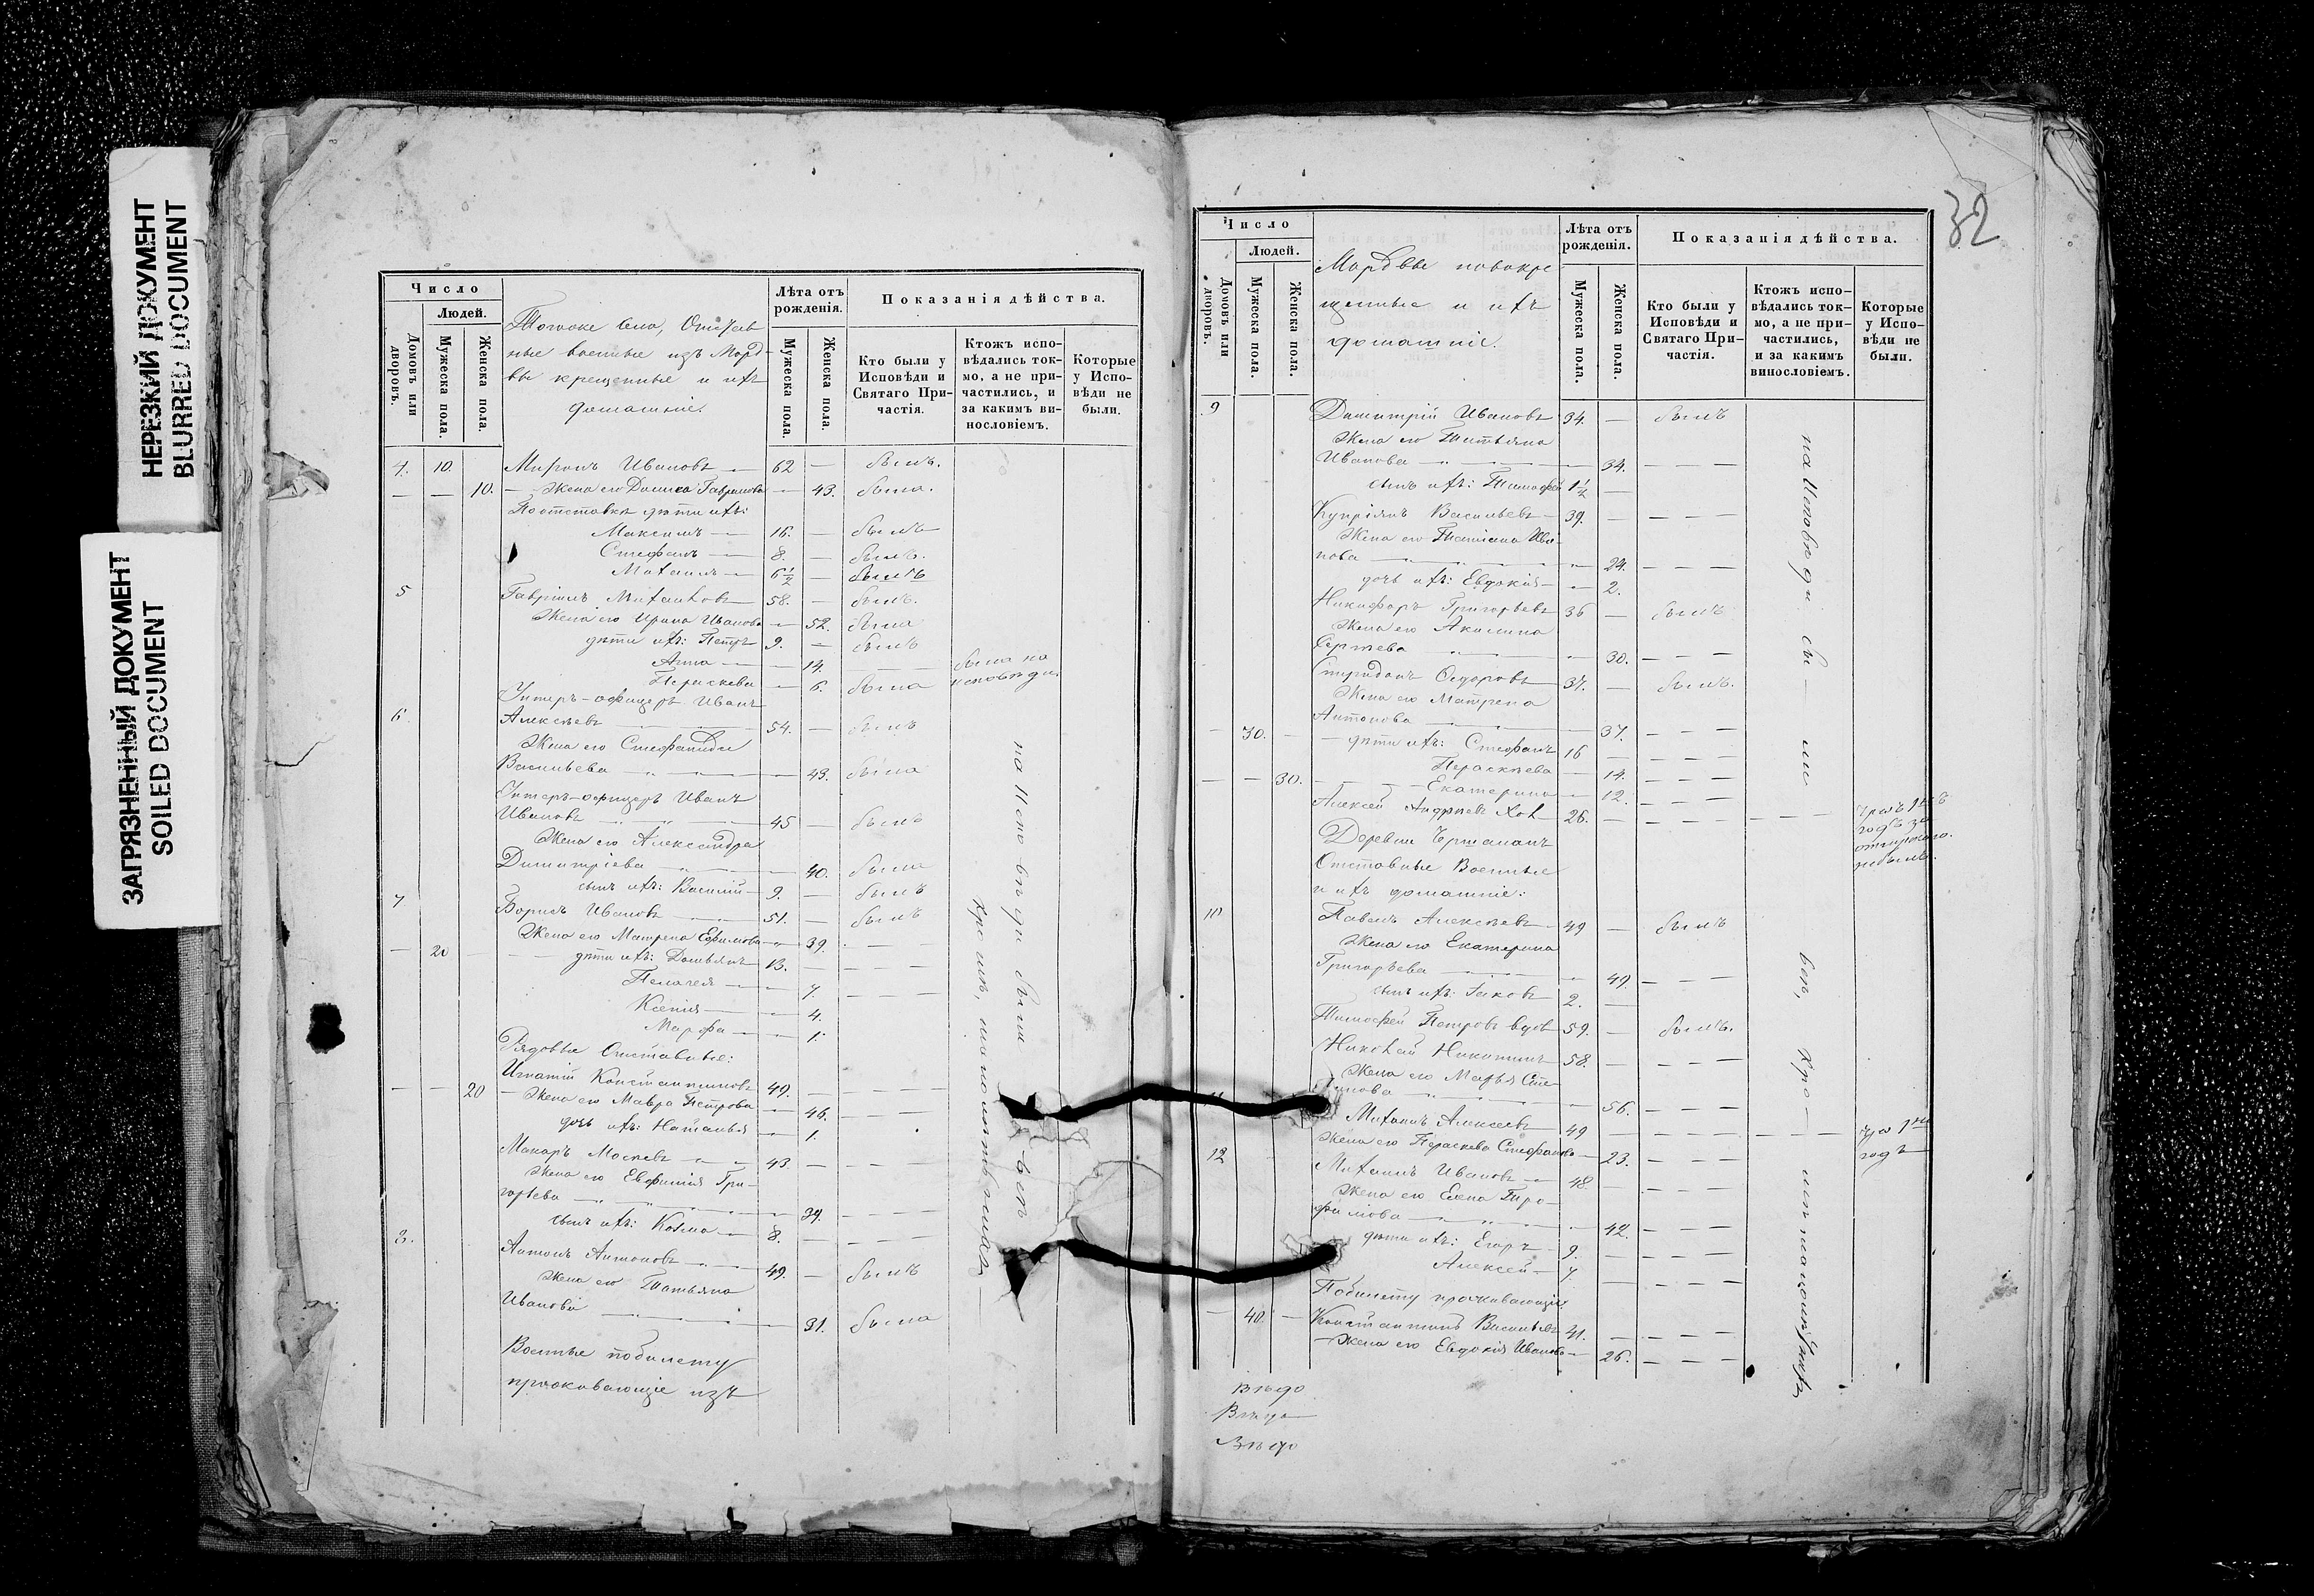 НЕРЕЗКИЙ ДОКУМЕНТ
BLURRED DOCUMENT
ЗАГРЯЗНЕННЫЙ ДОКУМЕНТ
SOILED DOCUMENT
Число
Людей.
Домовъ или дворовъ.
Мужеска пола.
Женска пола.
Тогоже села, Отстав
ные военные изъ Морд-
вы крещенные и ихъ
домашніе.
Лѣта отъ рожденія.
Мужеска пола.
Женска пола.
Показанія дѣйства.
Кто были у Исповѣди и Святаго Причастія.
Ктожъ исповѣдались токмо, а не причастились, и за какимъ винословіемъ.
Которые у Исповѣди не были.
4. 10. Миронъ Ивановъ 62 — былъ.
— — 10. Жена его Гаврилова — 43. была.
дѣти ихъ:
Максимъ 16. — былъ
Стефанъ 8. — былъ.
Михаилъ 6½ — былъ
5 Гавріилъ Михайловъ 58. — былъ.
Жена его Ирина Иванова — 52. была
дѣти ихъ: Петръ 9. — былъ
Анна — 14. — была на
Параскева — 6. была исповѣди.
Унтеръ-офицеръ Иванъ
6 Алексѣевъ 54. — былъ
Жена его Стефанида
Васильева — 43. была
Унтеръ-офицеръ Иванъ
Ивановъ 45 — былъ
Жена его Александра
Димитріева — 40. была
сынъ ихъ: Василій 9. — былъ
7 Борисъ Ивановъ 51. — былъ
Жена его Матрена Ефимова — 39. — —
— 20 — дѣти ихъ: Демьянъ 13. — — —
Пелагея — 7. — — —
Ксенія — 4.
Марфа — 1.
Рядовые Отставные:
Игнатій Константиновъ 49. — — —
— — 20 Жена его Мавра Петрова — 46. — — —
дочь ихъ: Наталья — 1.
Макаръ Мосѣевъ 43. — — —
Жена его Евфимія Гри-
горьева — 34. — — —
сынъ ихъ: Козма 8. — — —
8. Антонъ Антоновъ 49. — былъ
Жена его Татьяна
Иванова — 31. была
Военные по билету
проживающіе изъ
на исповѣди были всѣ
кромѣ, малолѣтнихъ
32
Число
Людей.
Домовъ или дворовъ.
Мужеска пола.
Женска пола.
Мордвы новокре-
щенные и ихъ
домашніе.
Лѣта отъ рожденія.
Мужеска пола.
Женска пола.
Показанія дѣйства.
Кто были у Исповѣди и Святаго Причастія.
Ктожъ исповѣдались токмо, а не причастились, и за какимъ винословіемъ.
Которые у Исповѣди не были.
9 Димитрій Ивановъ 34. — былъ
Жена его Татьяна
Иванова — 34. — — —
сынъ ихъ: Тимофей 1½ —
Купріянъ Васильевъ 39. — — —
Жена его Татіана Ива-
нова — 24. — — —
дочь ихъ: Евдокія — 2.
Никифоръ Григорьевъ 36 — былъ
Жена его Акилина
Сергѣева — 30. — — —
Спиридонъ Ѳедоровъ 37. — былъ.
Жена его Матрена
Антонова — 37. — — —
— 30. — дѣти ихъ: Стефанъ 16 — — —
Параскева — 14. — — —
— — 30. Екатерина — 12. — — —
Алексей Андреевъ Хол 26. — — — —
годъ за
небылъ.
Деревни
Отставные Военные
и ихъ домашніе:
10 Павелъ Алексѣевъ 49 — былъ
Жена его Екатерина
Григорьева — 49. — — —
сынъ ихъ: Іаковъ 2. —
Тимофей Петровъ вдов 59. — былъ.
Николай Никитинъ 58. — — —
Жена его Марья Сте-
— 56. — — —
Михаилъ Алексеевъ 49 — — — —
1й
годъ
Жена его Параскева Стефанова — 23. — — —
12 Михаилъ Ивановъ 48. — — —
Жена его Елена Тро-
фимова — 42. — — —
дѣти ихъ: Егоръ 9. — — —
Алексей 7. — — —
По билету проживающіе
— 40. — Константинъ Васильевъ 41. — — —
Жена его Евдокія Иванова — 26. — — —
на исповѣди бы-ли всѣ, кро-